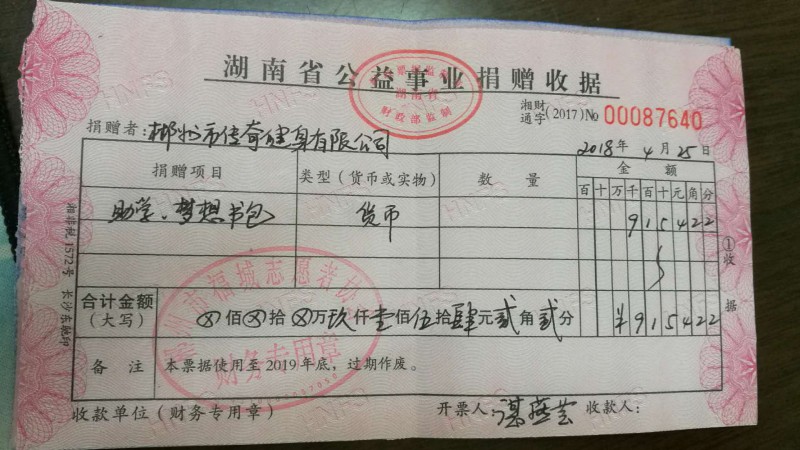 湖南省公益事业捐赠收据
湘财通字(2017)No 00087640
捐赠者:郴州市传奇健身有限公司
2018年4月25日
捐赠项目 类型(货币或实物) 数量 金额
百十万千百十元角分
助学、梦想书包 货币 915422
合计金额(大写) ⊗佰⊗拾⊗万玖仟壹佰伍拾肆元贰角贰分 ¥915422
备注 本票据使用至2019年底,过期作废。
收款单位(财务专用章) 开票人:谌燕芸 收款人:
①收据
长沙东施印
财政部监制
郴州市福城志愿者协
财务专用章